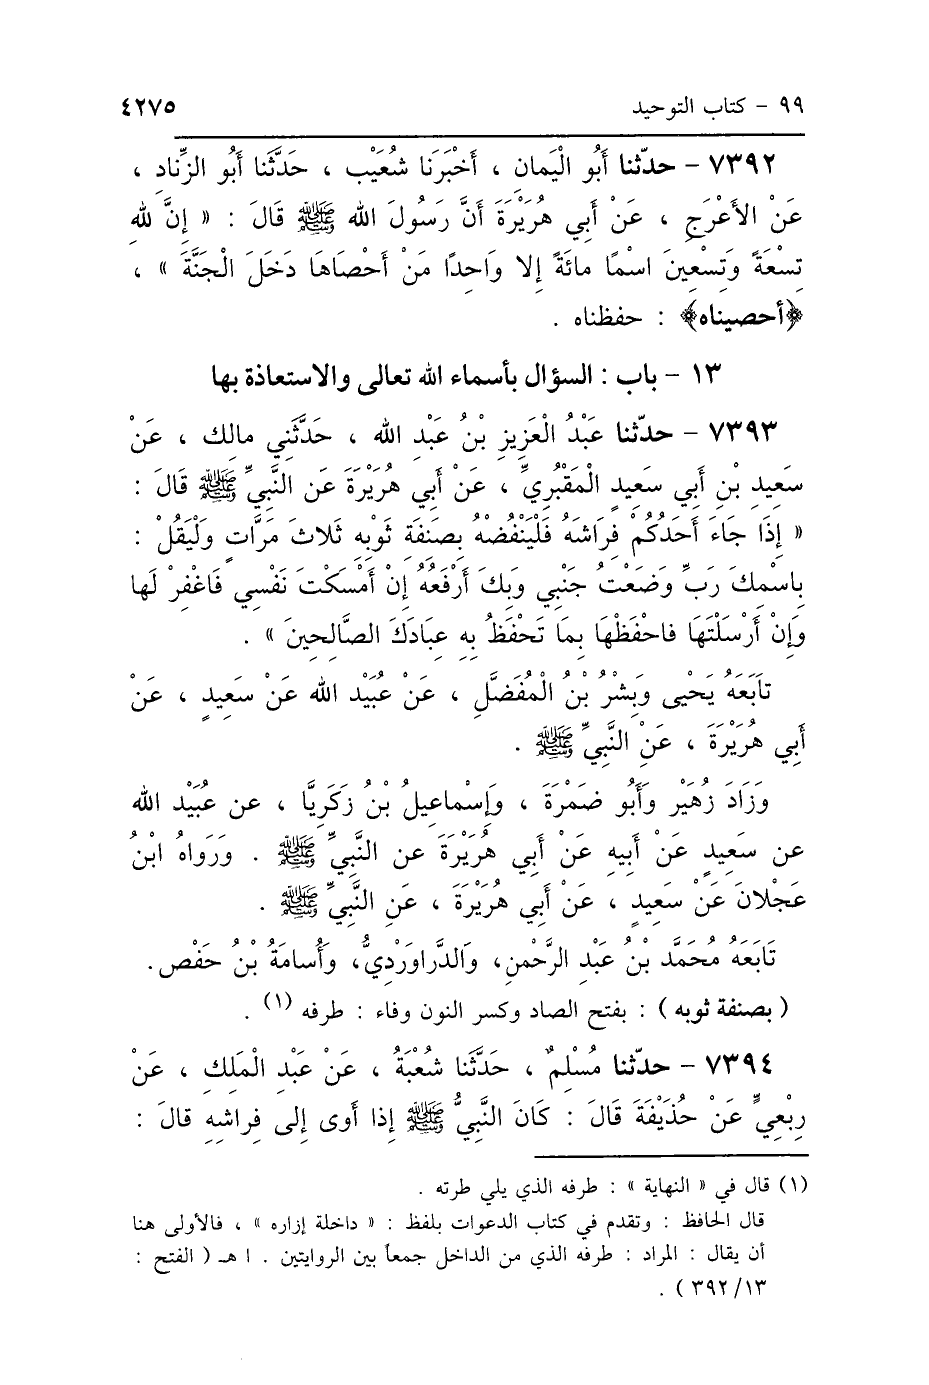 ٩٩ - كتاب التوحيد ٤٢٧٥
٧٣٩٢ - حدّثنا أَبُو الْيَمانِ ، أَخْبَرَنَا شُعَيْب ، حَدَّثَنا أَبُو الزِّنادِ ،
عَنْ الأَعْرَجِ ، عَنْ أَبِي هُرَيْرَةَ أَنَّ رَسُولَ الله ﷺ قَالَ : « إِنَّ لله
تِسْعَةً وَتِسْعِينَ اسْمًا مائَةً إِلا وَاحِدًا مَنْ أَحْصَاهَا دَخَلَ الْجَنَّةَ » ،
﴿أحصيناه﴾ : حفظناه .
١٣ - باب : السؤال بأسماء الله تعالى والاستعاذة بها
٧٣٩٣ - حدّثنا عَبْدُ الْعَزِيزِ بْنُ عَبْدِ الله ، حَدَّثَنِي مالِك ، عَنْ
سَعِيدِ بْنِ أَبِي سَعِيدٍ الْمَقْبُرِيِّ ، عَنْ أَبِي هُرَيْرَةَ عَنِ النَّبِيِّ ﷺ قَالَ :
« إِذَا جَاءَ أَحَدُكُمْ فِرَاشَهُ فَلْيَنْفُضْهُ بِصَنِفَةِ ثَوْبِهِ ثَلاثَ مَرَّاتٍ وَلْيَقُلْ :
بِاسْمِكَ رَبِّ وَضَعْتُ جَنْبِي وَبِكَ أَرْفَعُهُ إِنْ أَمْسَكْتَ نَفْسِي فَاغْفِرْ لَها
وَإِنْ أَرْسَلْتَهَا فاحْفَظْهَا بِمَا تَحْفَظُ بِهِ عِبَادَكَ الصَّالِحِينَ » .
تَابَعَهُ يَحْيى وَبِشْرُ بْنُ الْمُفَضَّلِ ، عَنْ عُبَيْدِ الله عَنْ سَعِيدٍ ، عَنْ
أَبِي هُرَيْرَةَ ، عَنِ النَّبِيِّ ﷺ .
وَزَادَ زُهَيْر وَأَبُو ضَمْرَةَ ، وَإِسْماعِيلُ بْنُ زَكَرِيَّا ، عن عُبَيْدِ الله
عن سَعِيدٍ عَنْ أَبِيهِ عَنْ أَبِي هُرَيْرَةَ عن النَّبِيِّ ﷺ . وَرَوَاهُ ابْنُ
عَجْلانَ عَنْ سَعِيدٍ ، عَنْ أَبِي هُرَيْرَةَ ، عَنِ النَّبِيِّ ﷺ .
تَابَعَهُ مُحَمَّد بْنُ عَبْدِ الرَّحْمنِ، وَالدَّراوَرْدِيُّ، وَأُسامَةُ بْنُ حَفْص.
( بصنفة ثوبه ) : بفتح الصاد وكسر النون وفاء : طرفه (١) .
٧٣٩٤ - حدّثنا مُسْلِمٌ ، حَدَّثَنا شُعْبَةُ ، عَنْ عَبْدِ الْمَلِكِ ، عَنْ
رِبْعِيٍّ عَنْ حُذَيْفَةَ قَالَ : كَانَ النَّبِيُّ ﷺ إِذَا أَوى إِلى فِراشِهِ قالَ :
(١) قال في « النهاية » : طرفه الذي يلي طرته .
قال الحافظ : وتقدم في كتاب الدعوات بلفظ : « داخلة إزاره » ، فالأولى هنا
أن يقال : المراد : طرفه الذي من الداخل جمعاً بين الروايتين . اهـ ( الفتح :
٣٩٢/١٣ ) .